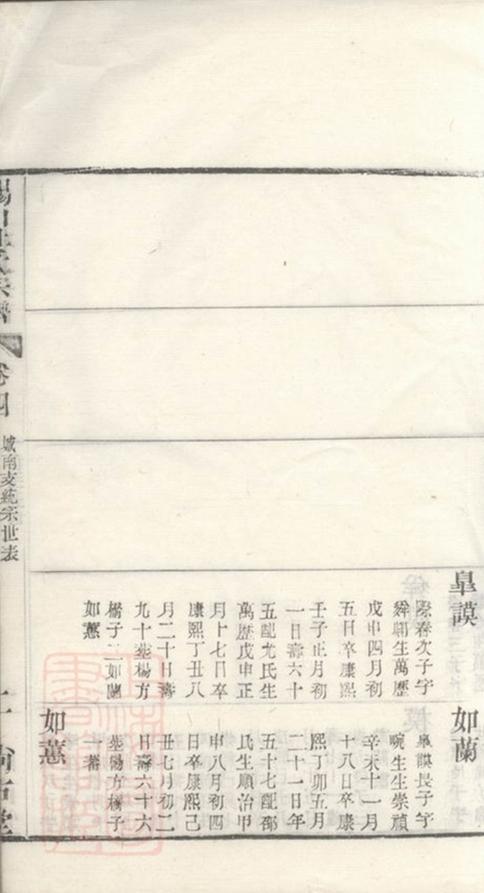 皐謨
際春次子字
舜颺生萬歷
戊申四月初
五日卒康熙
壬子正月初
一日壽六十
五配尤氏生
萬歷戊申正
月十七日卒
康熙丁丑八
月二十日壽
九十葬楊方
橋子二如蘭
如蕙
如蘭
皐謨長子字
畹生生崇禎
辛未十一月
十八日卒康
熙丁卯五月
二十一日年
五十七配邵
民生順治甲
申八月初四
日卒康熙己
丑七月初二
日壽六十六
葬楊方橋子
一
如蕙
卷四
城南支統宗世表